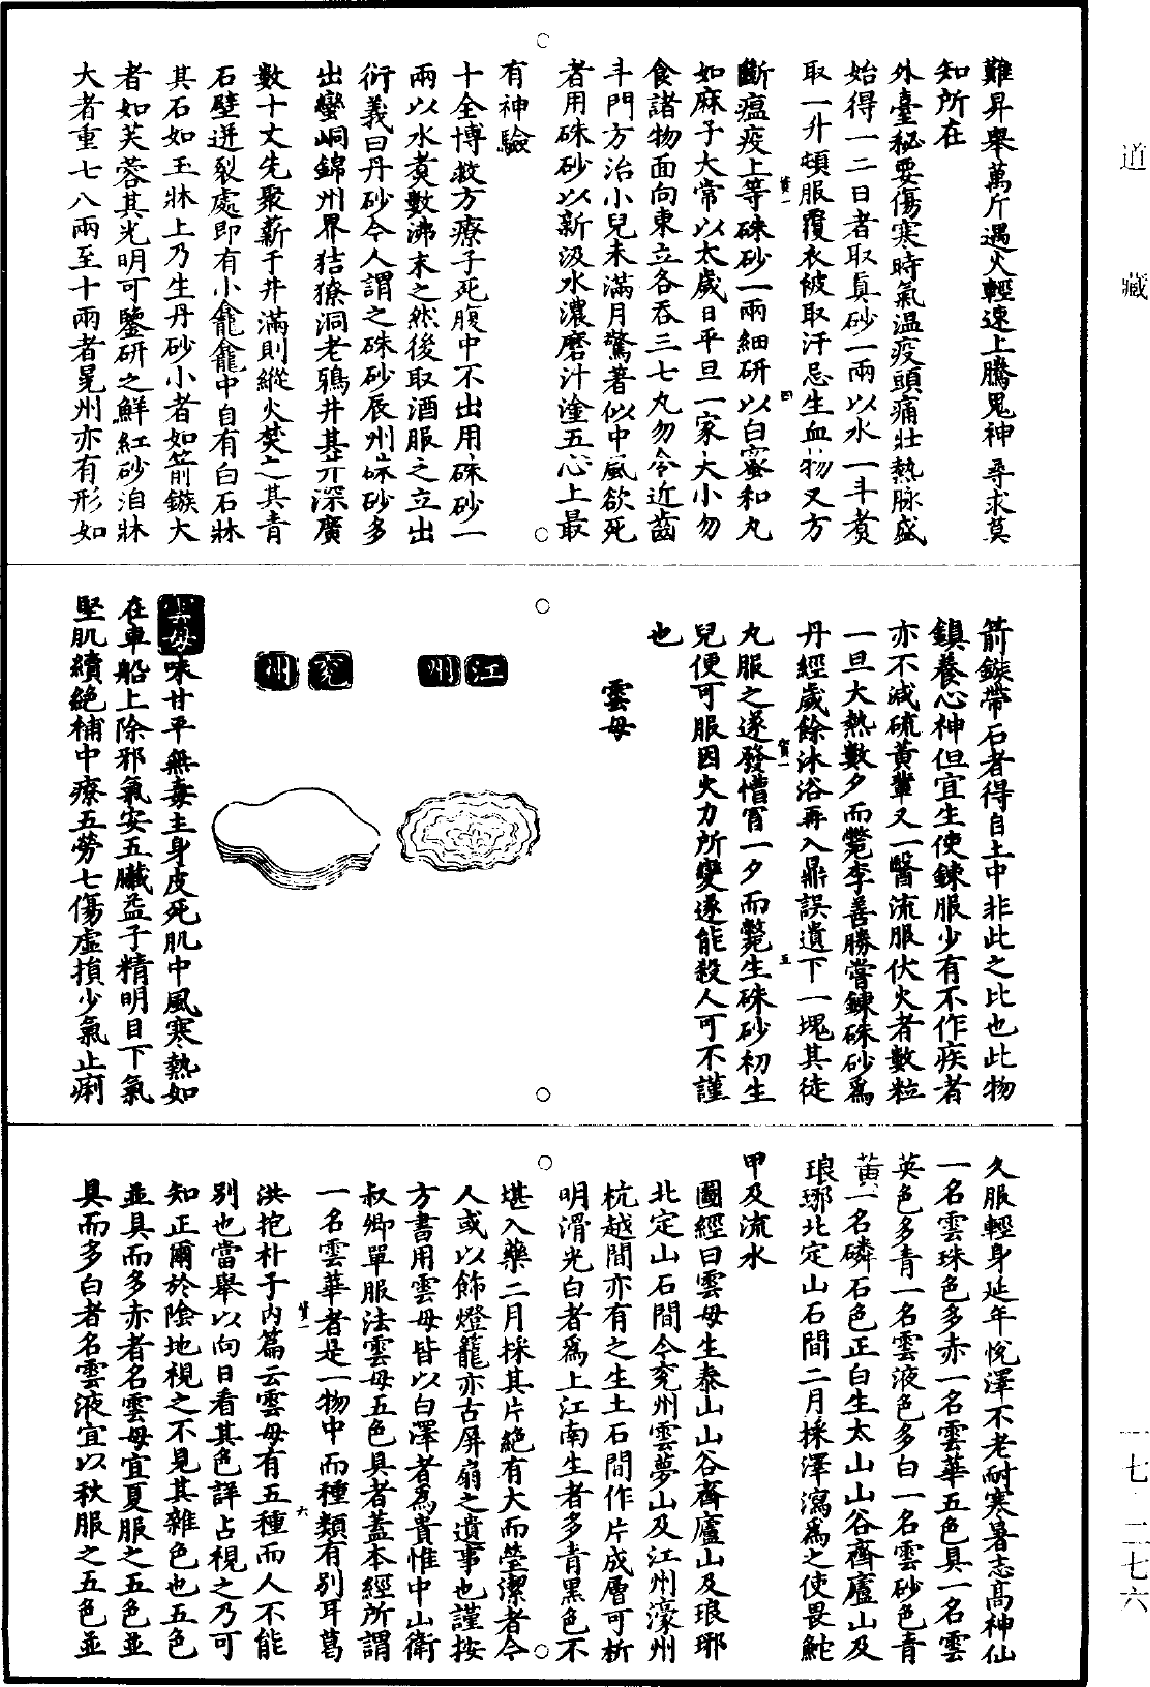 道藏
難昇舉萬斤遇火輕速上騰鬼神尋求莫
知所在
外臺秘要傷寒時氣溫疫頭痛壯熱脉盛
始得一二日者取真砂一兩以水一斗煑
取一升頓服覆衣被取汗忌生血物又方
斷瘟疫上等硃砂一兩細研以白蜜和丸
如麻子大常以太歲日平旦一家大小勿
食諸物面向東立各吞三七丸勿令近齒
斗門方治小兒未滿月驚著似中風欲死
者用硃砂以新汲水濃磨汁塗五心上最
有神驗
十全博救方療子死腹中不出用硃砂一
兩以水煑數沸末之然後取酒服之立出
衍義曰丹砂今人謂之硃砂辰州硃砂多
出蠻峒錦州界狤獠洞老鴉井其井深廣
數十丈先聚薪于井滿則縱火焚之其青
石壁迸裂處即有小龕龕中自有白石牀
其石如玉牀上乃生丹砂小者如箭鏃大
者如芙蓉其光明可鑒研之鮮紅砂洎牀
大者重七八兩至十兩者晃州亦有形如
箭鏃帶石者得自土中非此之比也此物
鎮養心神但宜生使鍊服少有不作疾者
亦不減硫黃輩又一醫流服伏火者數粒
一旦大熱數夕而斃李善勝嘗鍊硃砂爲
丹經歲餘沐浴再入鼎誤遺下一塊其徒
丸服之遂發懵冒一夕而斃生硃砂初生
兒便可服因火力所變遂能殺人可不謹
也
雲母
江州
兖州
雲母味甘平無毒主身皮死肌中風寒熱如
在車船上除邪氣安五臟益子精明目下氣
堅肌續絕補中療五勞七傷虛損少氣止痢
久服輕身延年悅澤不老耐寒暑志高神仙
一名雲珠色多赤一名雲華五色具一名雲
英色多青一名雲液色多白一名雲砂色青
黃一名磷石色正白生太山山谷齊廬山及
琅琊北定山石間二月採澤瀉爲之使畏鮀
甲及流水
圖經曰雲母生泰山山谷齊廬山及琅琊
北定山石間今兖州雲夢山及江州濠州
杭越間亦有之生土石間作片成層可析
明滑光白者爲上江南生者多青黑色不
堪入藥二月採其片絕有大而瑩潔者今
人或以飾燈籠亦古屏扇之遺事也謹按
方書用雲母皆以白澤者爲貴惟中山衛
叔卿單服法雲母五色具者蓋本經所謂
一名雲華者是一物中而種類有別耳葛
洪抱朴子內篇云雲母有五種而人不能
別也當舉以向日看其色詳占視之乃可
知正爾於陰地視之不見其雜色也五色
並具而多赤者名雲母宜夏服之五色並
具而多白者名雲液宜以秋服之五色並
一七·二七六